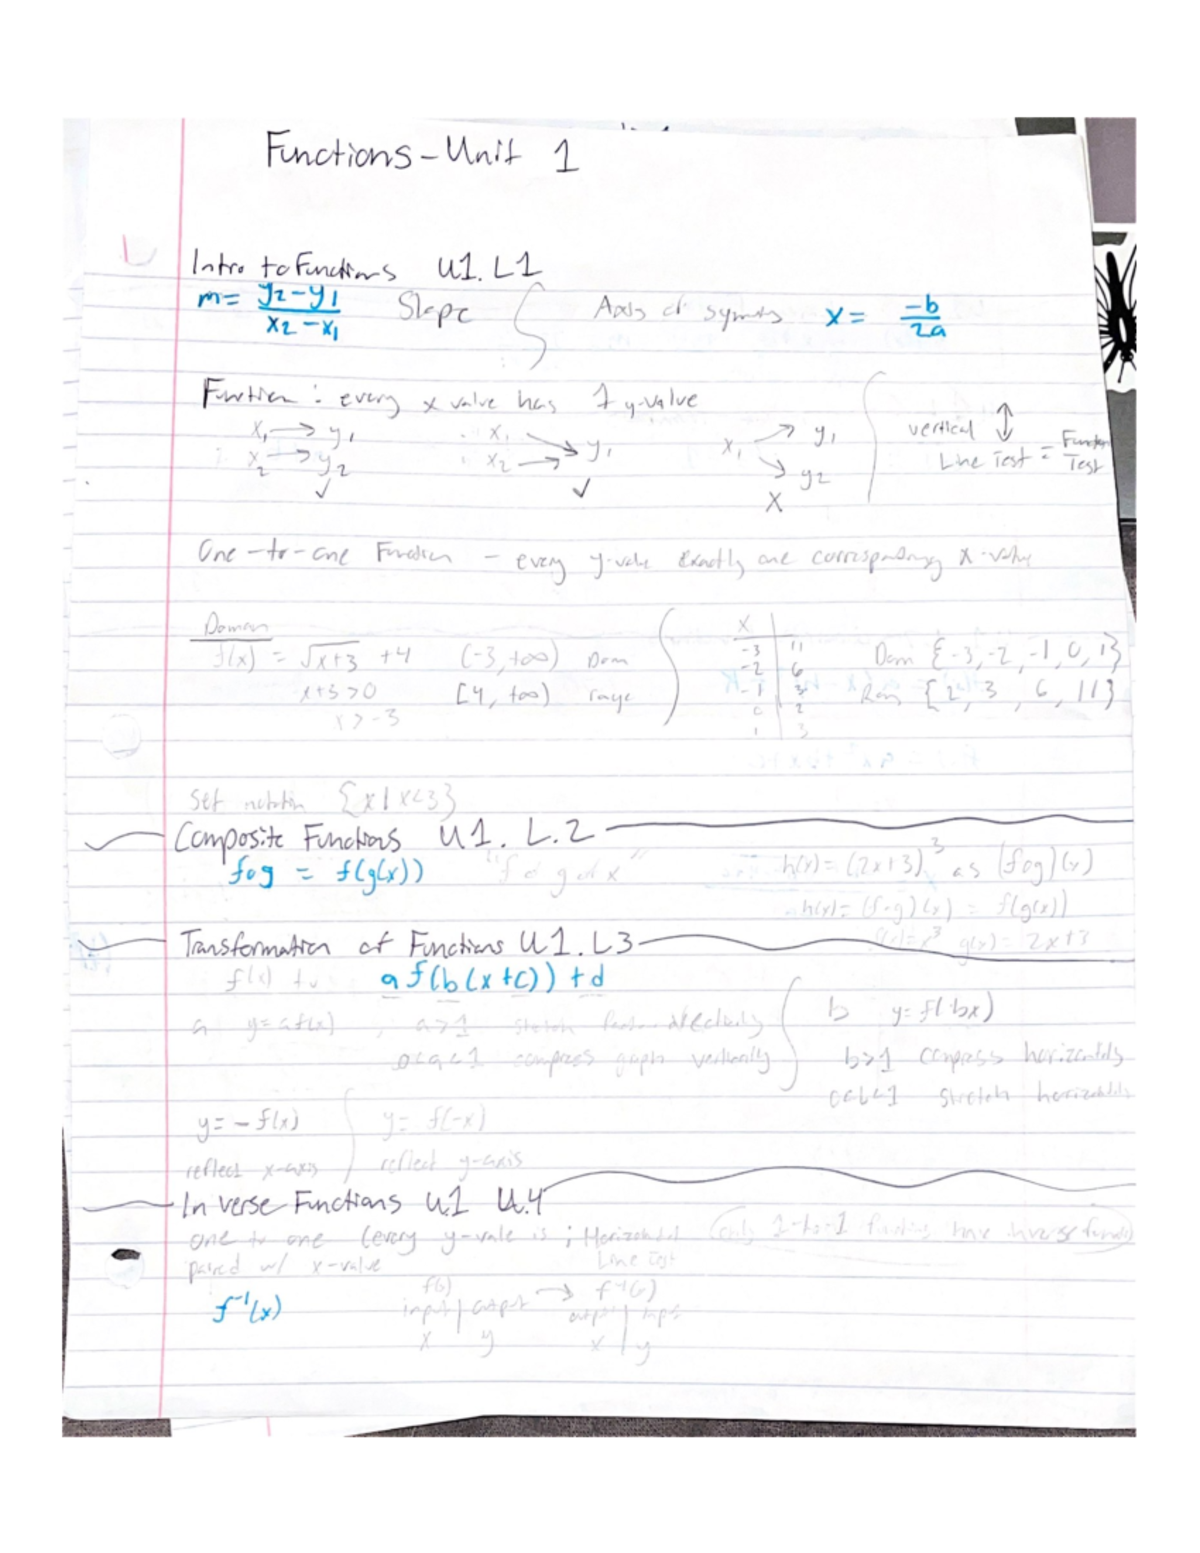 Functions - Unit 1
Intro to Functions U1. L1
m = y₂-y₁ / x₂-x₁ Slope Axis of symmty x = -b / 2a
Function : every x value has 1 y-value
x₁ → y₁ x₁ → y₁ x₁ → y₁ vertical ↕
x₂ → y₂ x₂ → → y₂ Line Test = Function Test
✓ ✓ X
One-to-one Function - every y-value exactly one corresponding x-value
Domain
f(x) = √x+3 +4 (-3, +∞) Dom
x+3 > 0 [4, +∞) range
x > -3
x
-3 11
-2 6
-1 3
0 2
1 3
Dom {-3, -2, -1, 0, 1}
Ran {2, 3, 6, 11}
Set notation {x | x<3}
Composite Functions U1. L.2
fog = f(g(x)) "f of g of x" h(x) = (2x+3)³ as (fog)(x)
h(x) = (fog)(x) = f(g(x))
f(x)=x³ g(x) = 2x+3
Transformation of Functions U1. L3
f(x) to a f(b(x+c)) + d
a y = af(x) ; a>1 stretch
0<a<1 compress graph vertically
b y = f(bx)
b>1 compress horizontally
0<b<1 stretch horizontally
y = - f(x) y = f(-x)
reflect x-axis reflect y-axis
Inverse Functions U.1 U.4
one to one (every y-value is ; Horizontal (only 1-to-1 functions have inverse
paired w/ x-value Line Test
f(x) → f⁻¹(x)
f⁻¹(x) input | output output | input
x y x | y